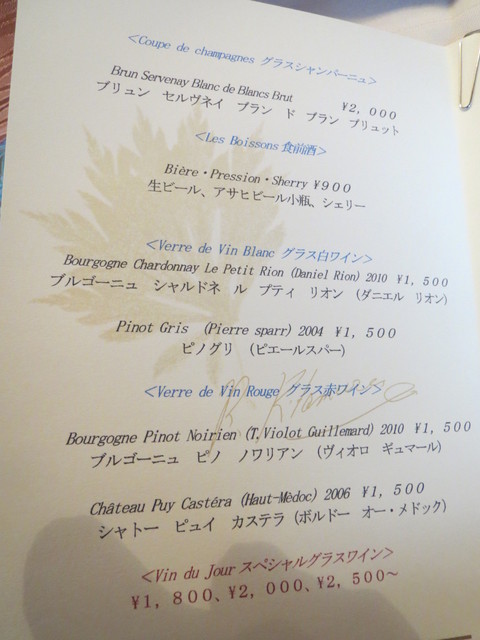 <Coupe de champagnes グラスシャンパーニュ>
Brun Servenay Blanc de Blancs Brut ¥2,000
ブリュン セルヴネイ ブラン ド ブラン ブリュット
<Les Boissons 食前酒>
Bière・Pression・Sherry ¥900
生ビール、アサヒビール小瓶、シェリー
<Verre de Vin Blanc グラス白ワイン>
Bourgogne Chardonnay Le Petit Rion (Daniel Rion) 2010 ¥1,500
ブルゴーニュ シャルドネ ル プティ リオン (ダニエル リオン)
Pinot Gris (Pierre sparr) 2004 ¥1,500
ピノグリ (ピエールスパー)
<Verre de Vin Rouge グラス赤ワイン>
Bourgogne Pinot Noirien (T,Violot Guillemard) 2010 ¥1,500
ブルゴーニュ ピノ ノワリアン (ヴィオロ ギュマール)
Château Puy Castéra (Haut-Mèdoc) 2006 ¥1,500
シャトー ピュイ カステラ (ボルドー オー・メドック)
<Vin du Jour スペシャルグラスワイン>
¥1,800、¥2,000、¥2,500～